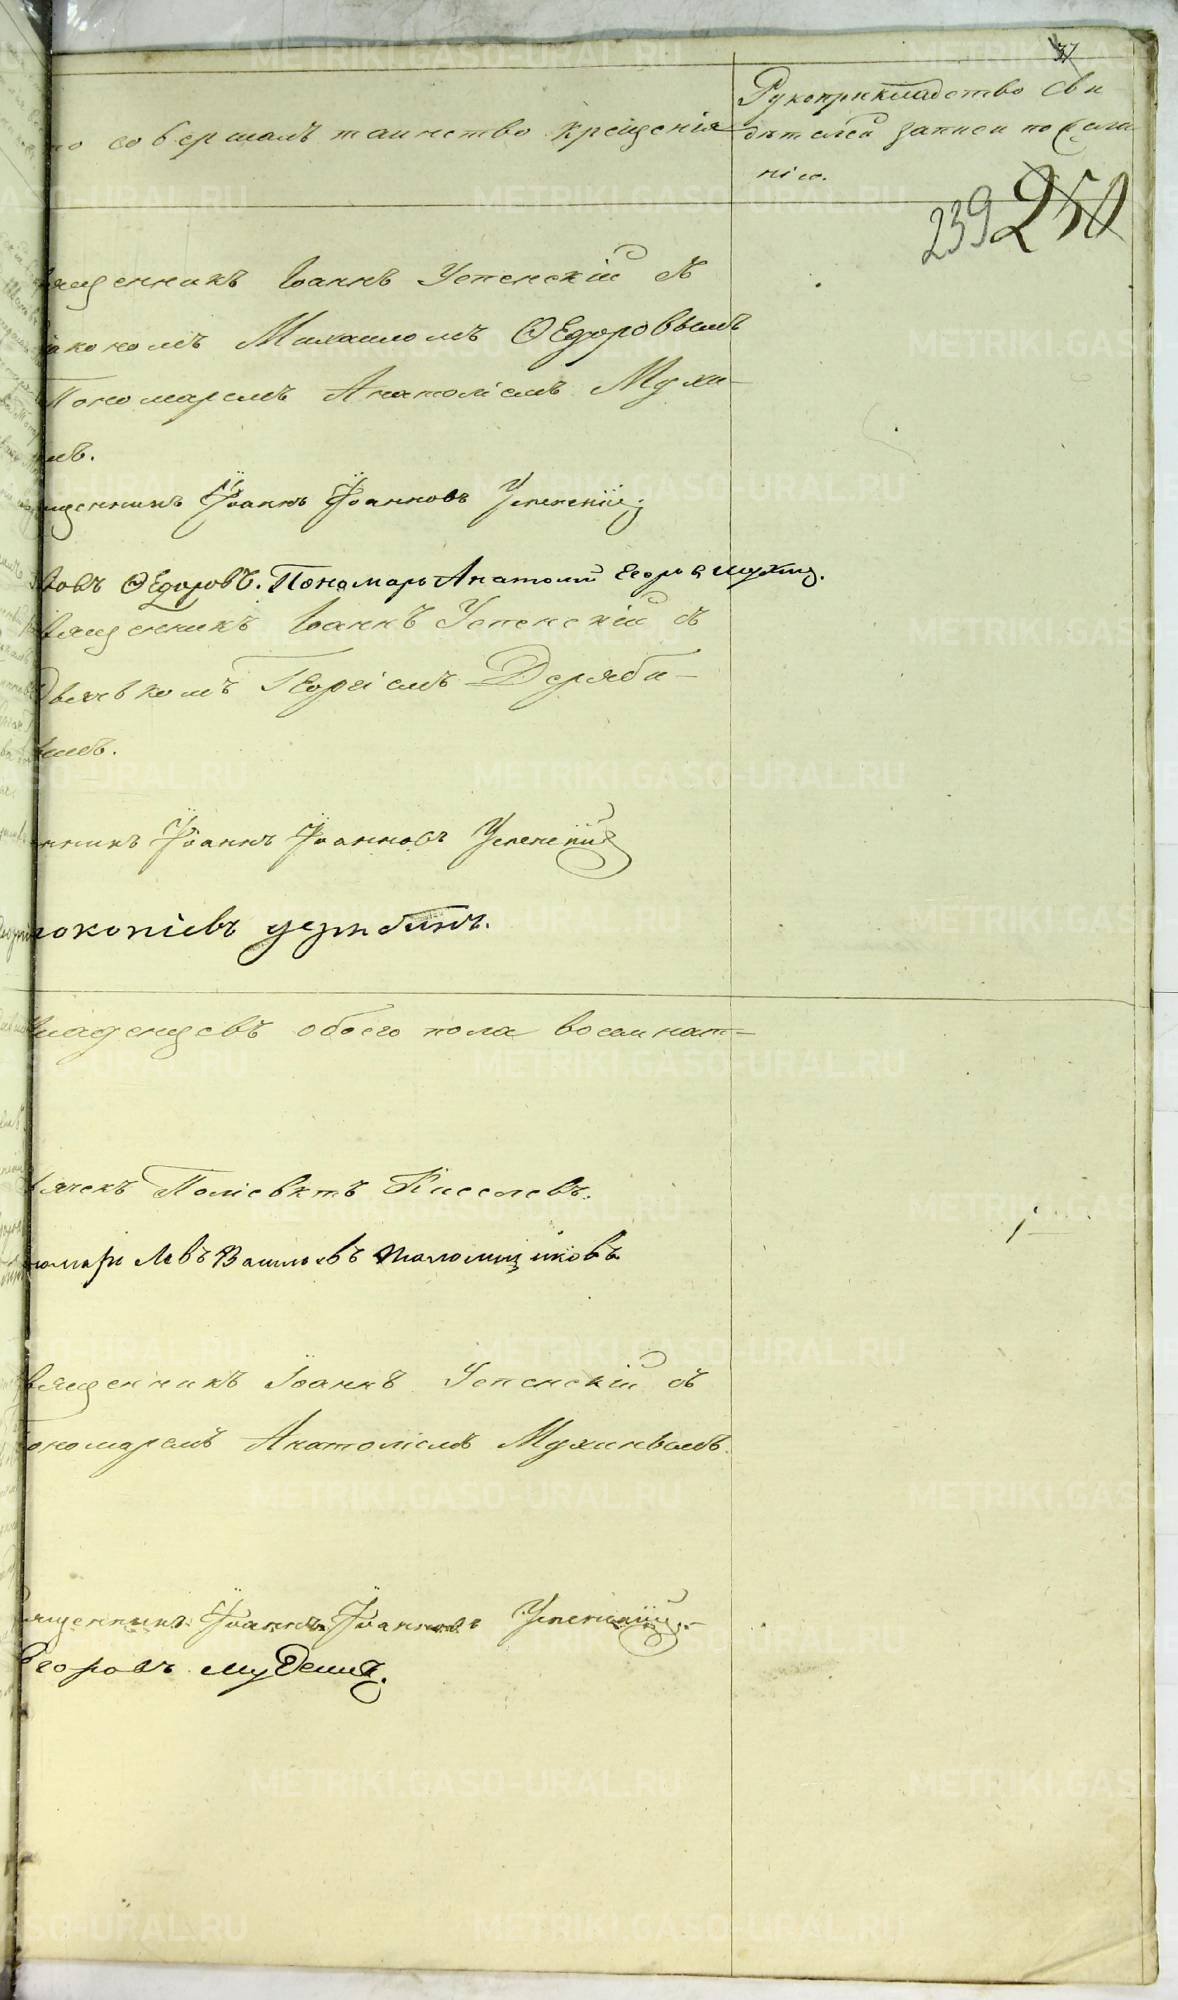 37
но совершалъ таинство крещенія
Рукоприкладство сви
дѣтелей записи по жела
нію.
239 250
священникъ Іоаннъ Успенскій съ
Діакономъ Михаиломъ Ѳедоровымъ
Пономаремъ Анатоліемъ Мухи-
мъ.
щенникъ Іоаннъ Іоанновъ Успенскій
ловъ Ѳедоровъ. Пономарь Анатолій Егоровъ Мухинъ.
священникъ Іоаннъ Успенскій съ
Дьячькомъ Георгіемъ Деряби-
нымъ.
енникъ Іоаннъ Іоанновъ Успенскій
рокопіевъ Дерябинъ.
младенцевъ обоего пола восемнат-
дьячекъ Поліевктъ Киселевъ.
номарь Левъ Васильевъ
священникъ Іоаннъ Успенскій съ
пономаремъ Анатоліемъ Мухинымъ.
священникъ Іоаннъ Іоанновъ Успенскій.
Егоровъ
METRIKI.GASO-URAL.RU